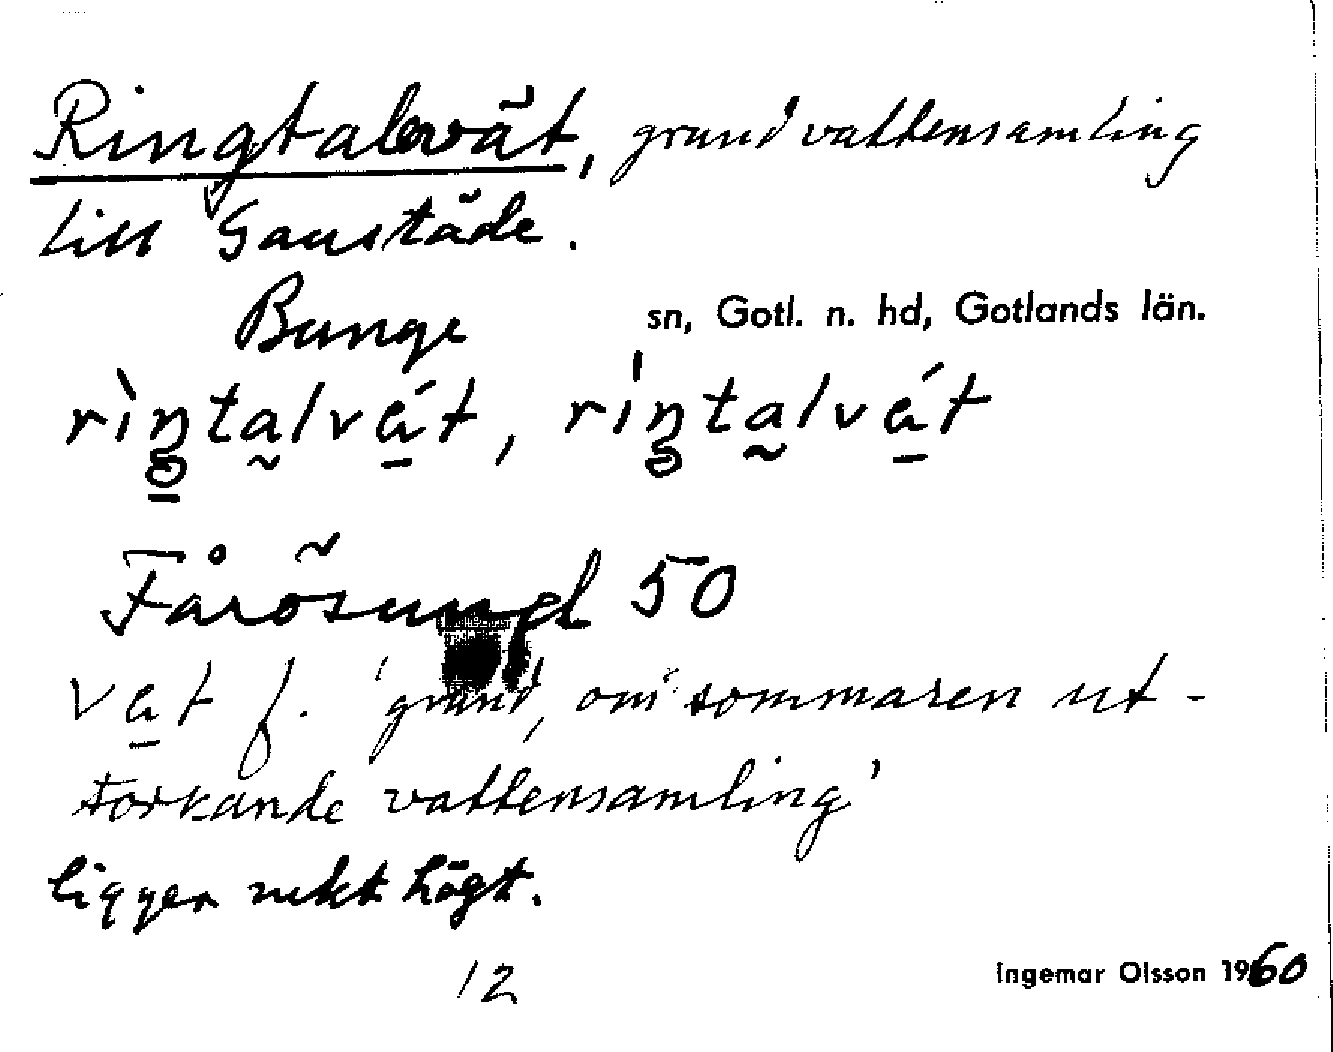 Ringtalsvät, grund vattensamling
till Gaustäde.
Bunge sn, Gotl. n. hd, Gotlands län.
rìŋtalvát, ríŋtalvát
Fårösund 50
vat f. 'grund, om sommaren ut-
torkande vattensamling'
ligger rekt högt.
12
Ingemar Olsson 1960